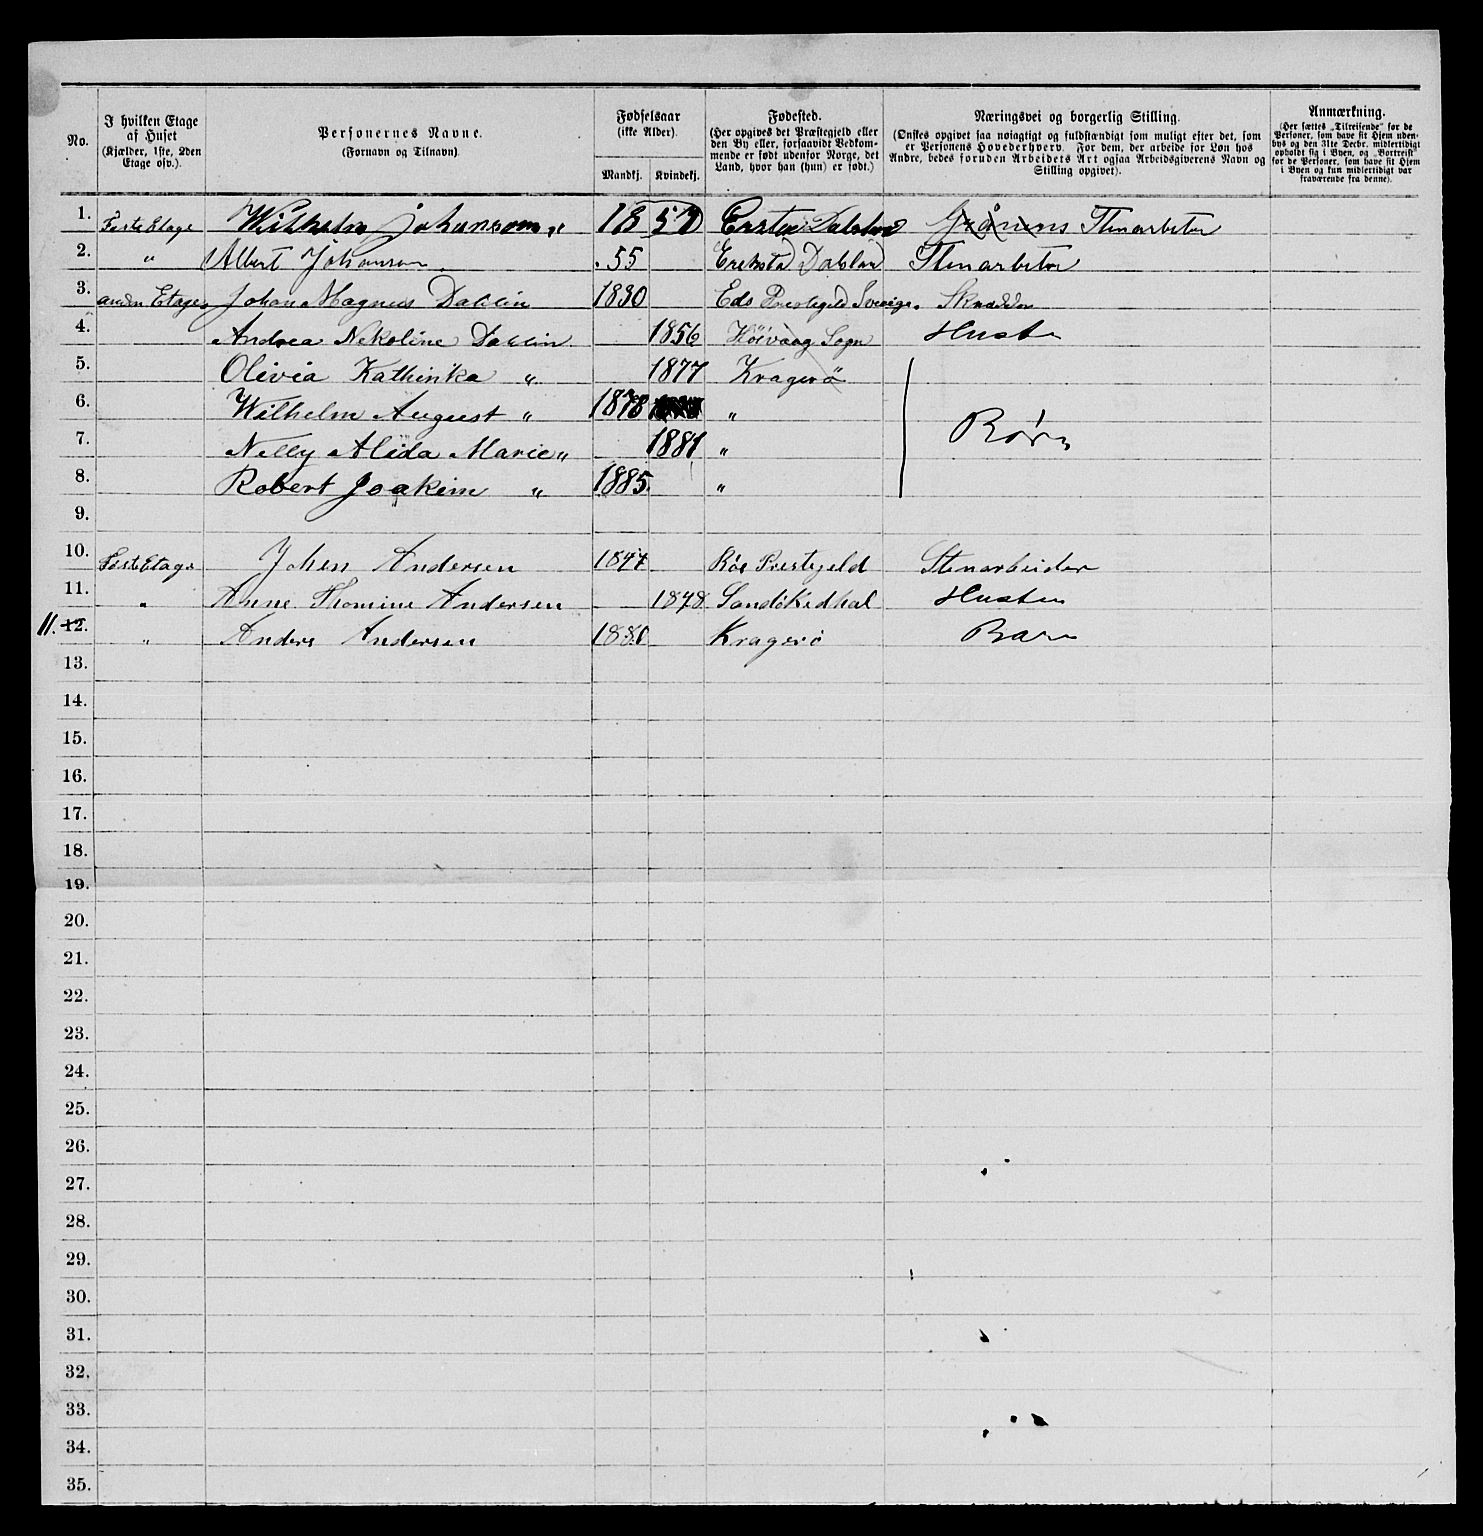 No.
I hvilken Etage af Huset (Kjælder, 1ste, 2den Etage osv.).
Personernes Navne. (Fornavn og Tilnavn).
Fødselsaar (ikke Alder).
Mandkj. Kvindekj.
Fødested. (Her opgives det Præstegjeld eller den By eller, forsaavidt Vedkommende er født udenfor Norge, det Land, hvor han (hun) er født.)
Næringsvei og borgerlig Stilling. (Ønskes opgivet saa nøiagtigt og fuldstændigt som muligt efter det, som er Personens Hovederhverv. For dem, der arbeide for Løn hos Andre, bedes foruden Arbeidets Art ogsaa Arbeidsgiverens Navn og Stilling opgivet).
Anmærkning. (Her sættes „Tilreisende" for de Personer, som have sit Hjem udenbys og den 31te Decbr. midlertidigt opholdt sig i Byen, og „Bortreist" for de Personer, som have sit Hjem i Byen og kun midlertidigt var fraværende fra denne).
1. Føste Etage Wilhelm Johanson 1857 Dalsland Stenarbetor
2. " Albert Johanson .55 Dalsland Stenarbetor
3. anden Etage Johan Magnus Dahlin 1830 Eds Prestegeld Sverige. Skrædder
4. Andrea Nekoline Dahlin 1856 Höivaag Sogn Hustru
5. Olivia Kathinka " 1877 Kragerö
6. Wilhelm August " 1878 "
7. Nelly Alida Marie " 1881 " Börn
8. Robert Joakim " 1885. "
9.
10. Føste Etage Johan Andersen 1847 Prestegeld Stenarbeider
11. " Anne Thomine Andersen 1848 Sandökedhal Hustru
11. 12. " Anders Andersen 1880 Kragerö Barn
13.
14.
15.
16.
17.
18.
19.
20.
21.
22.
23.
24.
25.
26.
27.
28.
29.
30.
31.
32.
33.
34.
35.